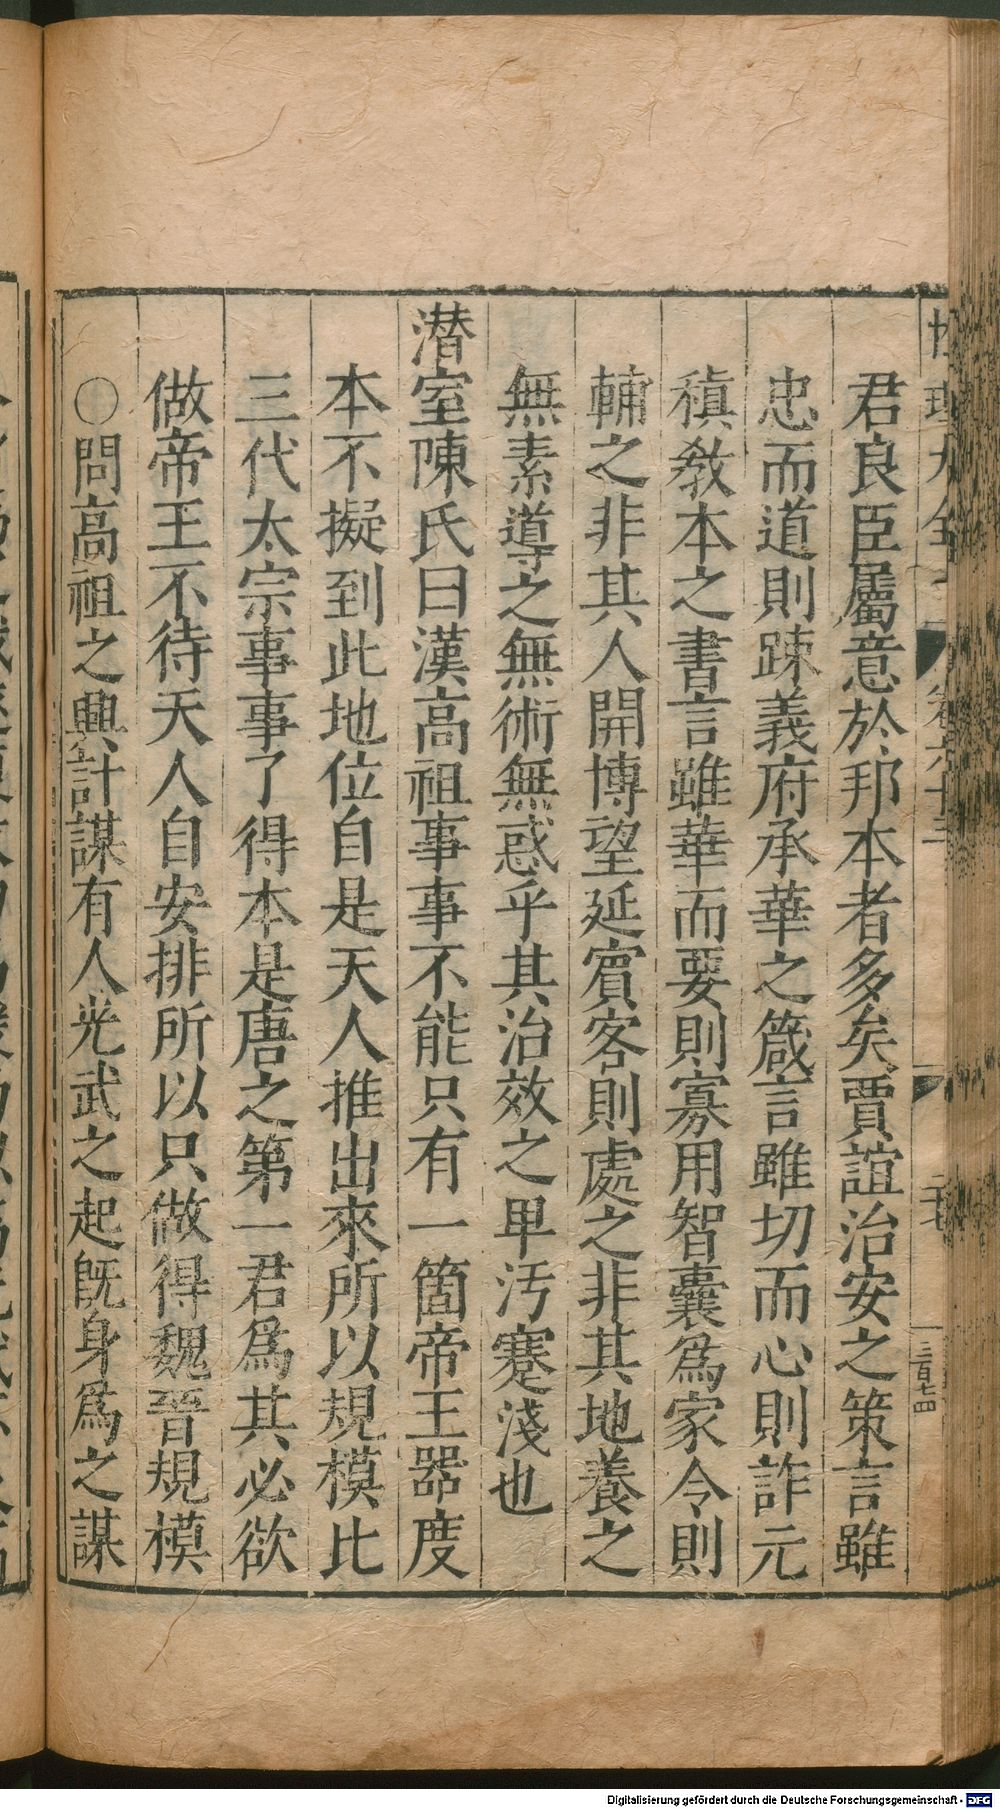 君良臣屬意於邦本者多矣賈誼治安之策言雖
忠而道則踈義府承華之箴言雖切而心則詐元
稹敎本之書言雖華而要則寡用智囊爲家令則
輔之非其人開博望延賓客則處之非其地養之
無素導之無術無惑乎其治效之卑汚蹇淺也
潛室陳氏曰漢高祖事事不能只有一箇帝王器度
本不擬到此地位自是天人推出來所以規模比
三代太宗事事了得本是唐之第一君爲其必欲
做帝王不待天人自安排所以只做得魏晉規模
○問高祖之興計謀有人光武之起旣身爲之謀
二十七
三百七四
Digitalisierung gefördert durch die Deutsche Forschungsgemeinschaft - DFG